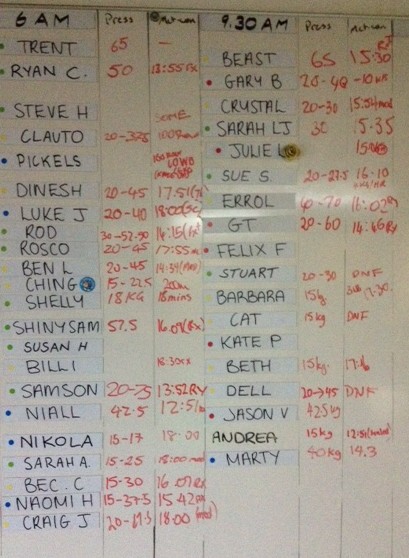 6 AM Press Metcon
TRENT 65 —
RYAN C. 50 13:55 RX
STEVE H SOME
CLAUTO 20-32.5
PICKELS
DINESH 20-45 17.51
LUKE J 20-40 18:00
ROD 30-52.50 14:15
ROSCO 20-45 17:55
BEN L 20-45 14:54
CHING 15-22.5 200m
SHELLY 18KG 18mins
SHINYSAM 57.5 16.09(RX)
SUSAN H
BILLI 18:30RX
SAMSON 20-75 13:52RX
NIALL 42.5 12:51
NIKOLA 15-17 18:00
SARAH A. 15-25 18:00 mod
BEC. C 15-30 16.01RX
NAOMI H 15-37.5 15.42
CRAIG J 20-47.5 18:00 (mod)
9.30 AM Press Metcon
BEAST 65 15:30 RX
GARY B 20-40
CRUSTAL 20-30 15:54 mod
SARAH LJ 30 15.35
JULIE L
SUE S. 20-27.5 16-10
ERROL 16:02RX
GT 20-60 14:46RX
FELIX F
STUART 20-30 DNF
BARBARA 15kg
CAT 15kg DNF
KATE P
BETH 15kg
DELL 20→45 DNF
JASON V 42.5kg
ANDREA 15kg 12:51(mod)
MARTY 40kg 14.3